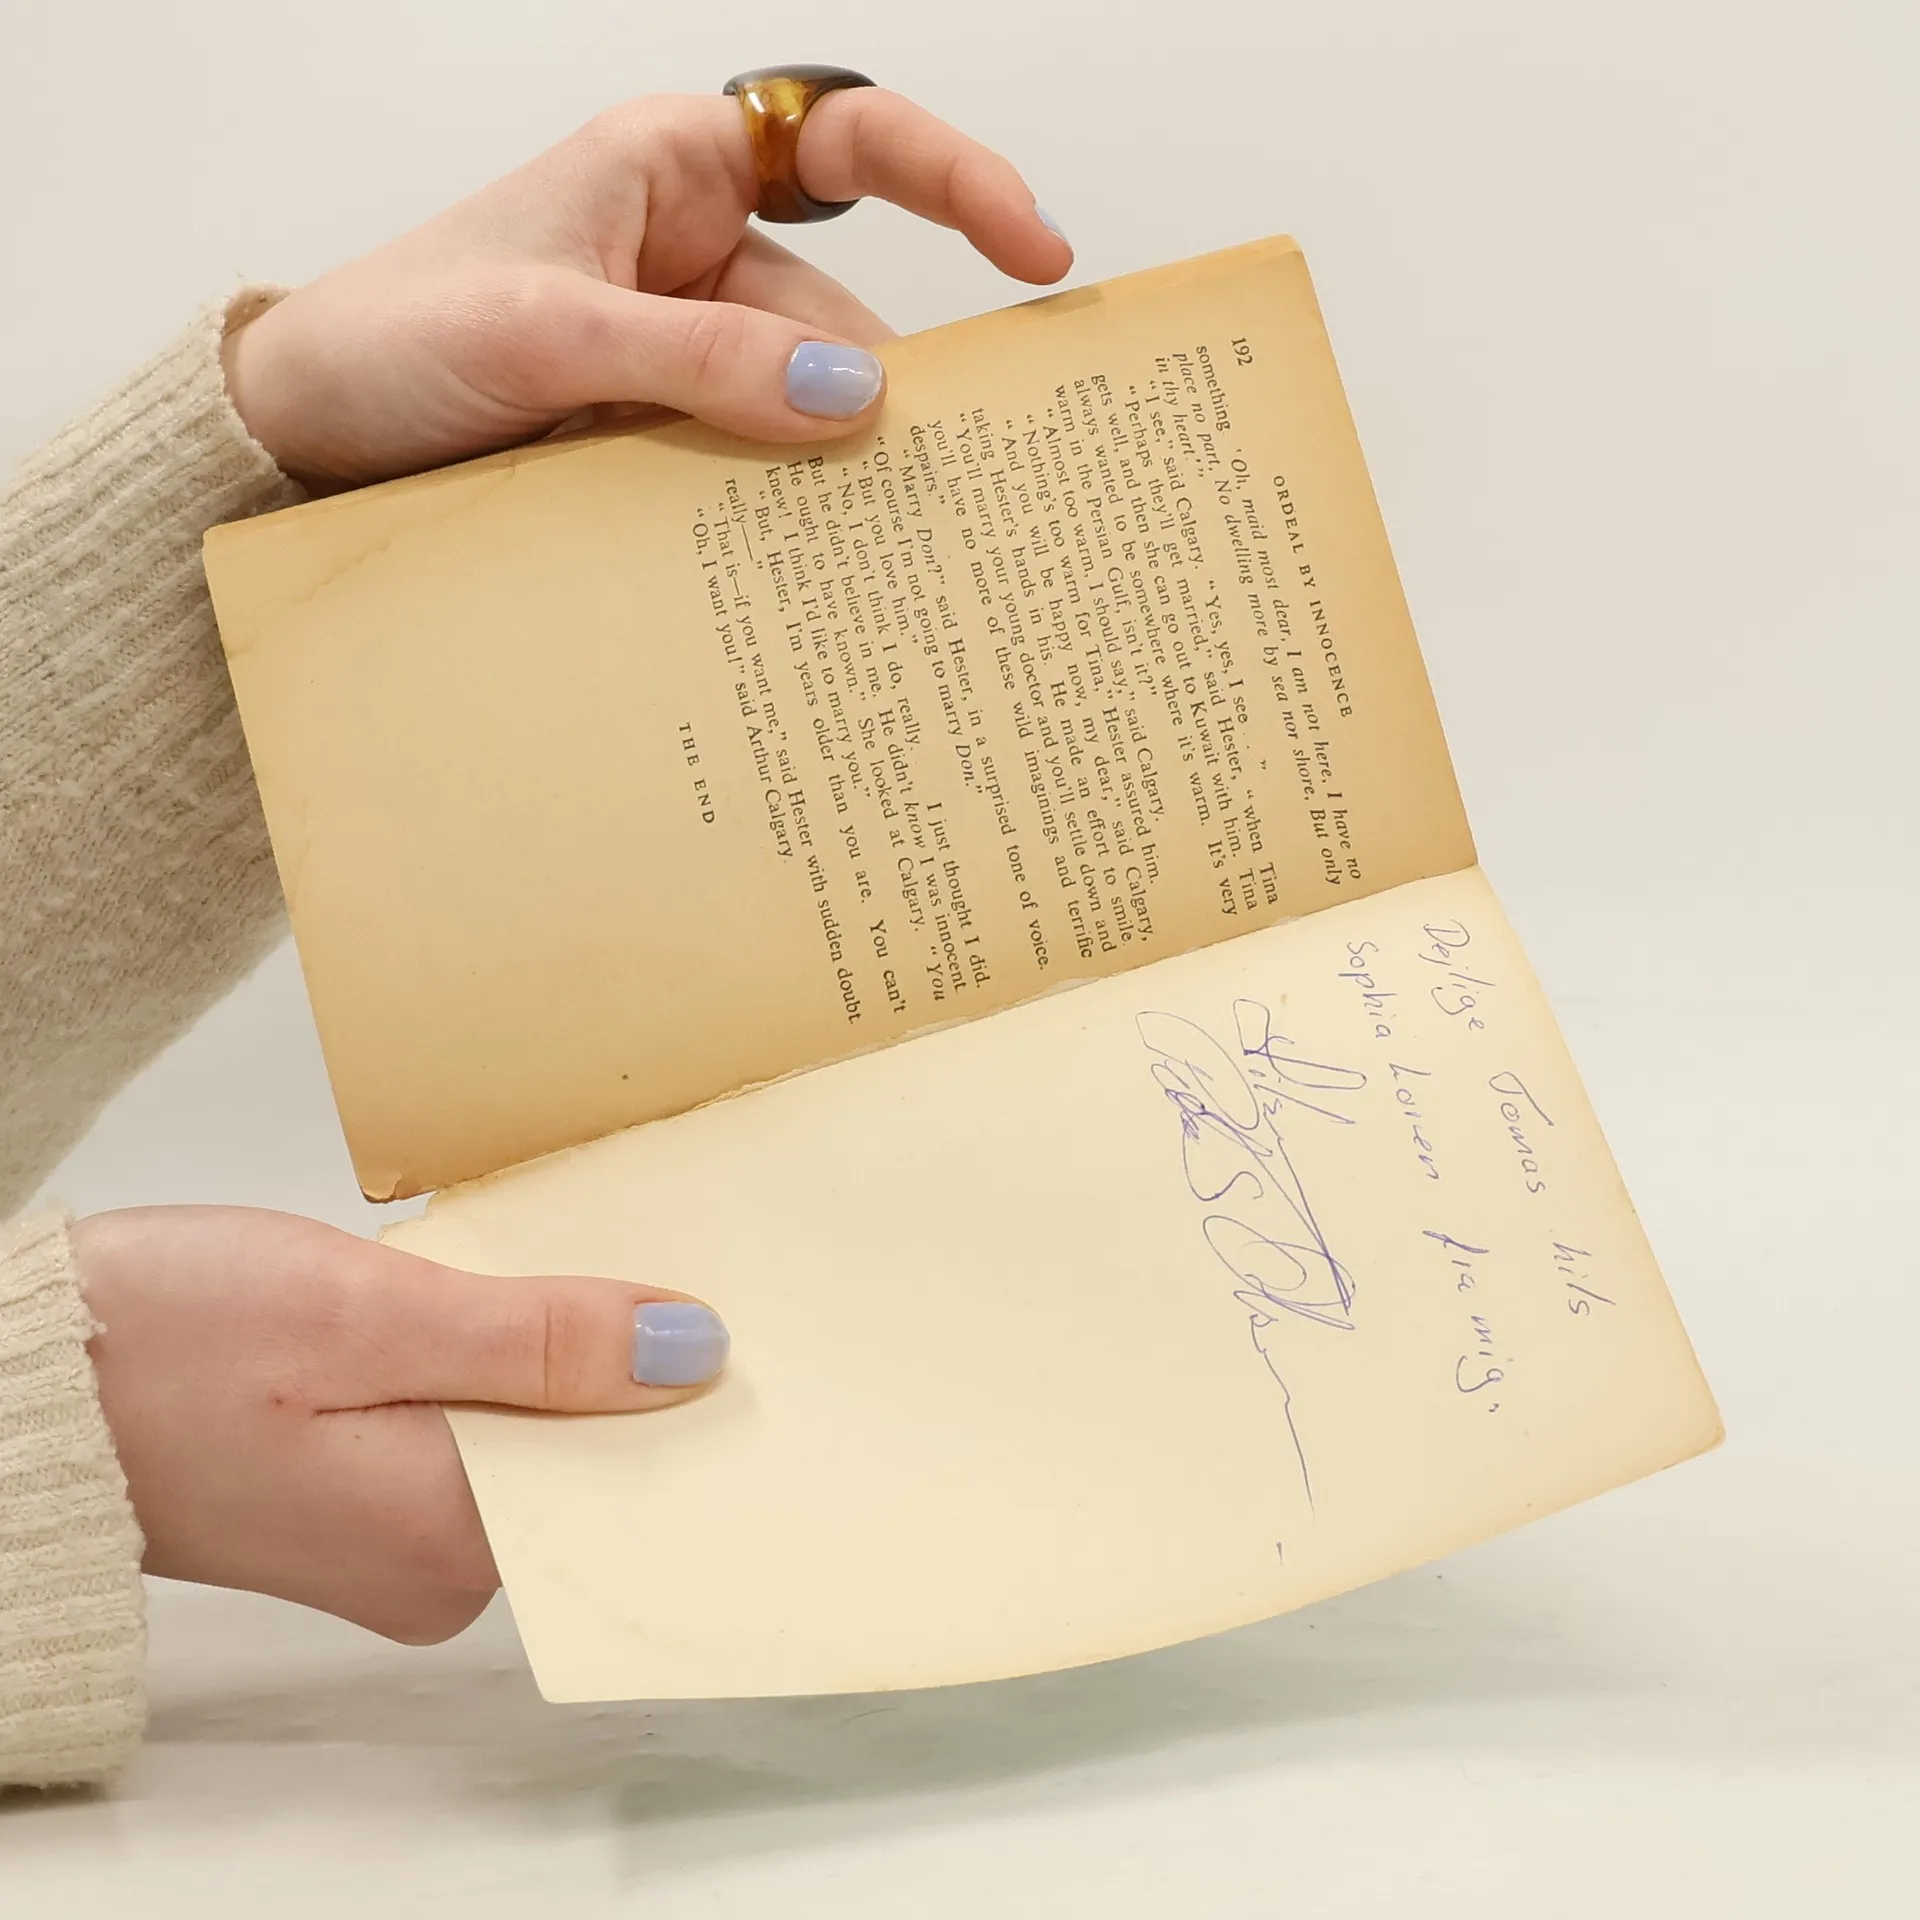 192
ORDEAL BY INNOCENCE
something. ‘Oh, maid most dear, I am not here, I have no
place no part, No dwelling more by sea nor shore, But only
in thy heart.’”
“I see,” said Calgary. “Yes, yes, I see . . .”
“Perhaps they’ll get married,” said Hester, “when Tina
gets well, and then she can go out to Kuwait with him. Tina
always wanted to be somewhere where it’s warm. It’s very
warm in the Persian Gulf, isn’t it?”
“Almost too warm, I should say,” said Calgary.
“Nothing’s too warm for Tina,” Hester assured him.
“And you will be happy now, my dear,” said Calgary,
taking Hester’s hands in his. He made an effort to smile.
“You’ll marry your young doctor and you’ll settle down and
you’ll have no more of these wild imaginings and terrific
despairs.”
“Marry Don?” said Hester, in a surprised tone of voice.
“Of course I’m not going to marry Don.”
“But you love him.”
“No, I don’t think I do, really. I just thought I did.
But he didn’t believe in me. He didn’t know I was innocent.
He ought to have known.” She looked at Calgary. “You
knew! I think I’d like to marry you.”
“But, Hester, I’m years older than you are. You can’t
really——”
“That is—if you want me,” said Hester with sudden doubt.
“Oh, I want you!” said Arthur Calgary.
THE END
Dejlige Tomas hils
Sophia Loren fra mig